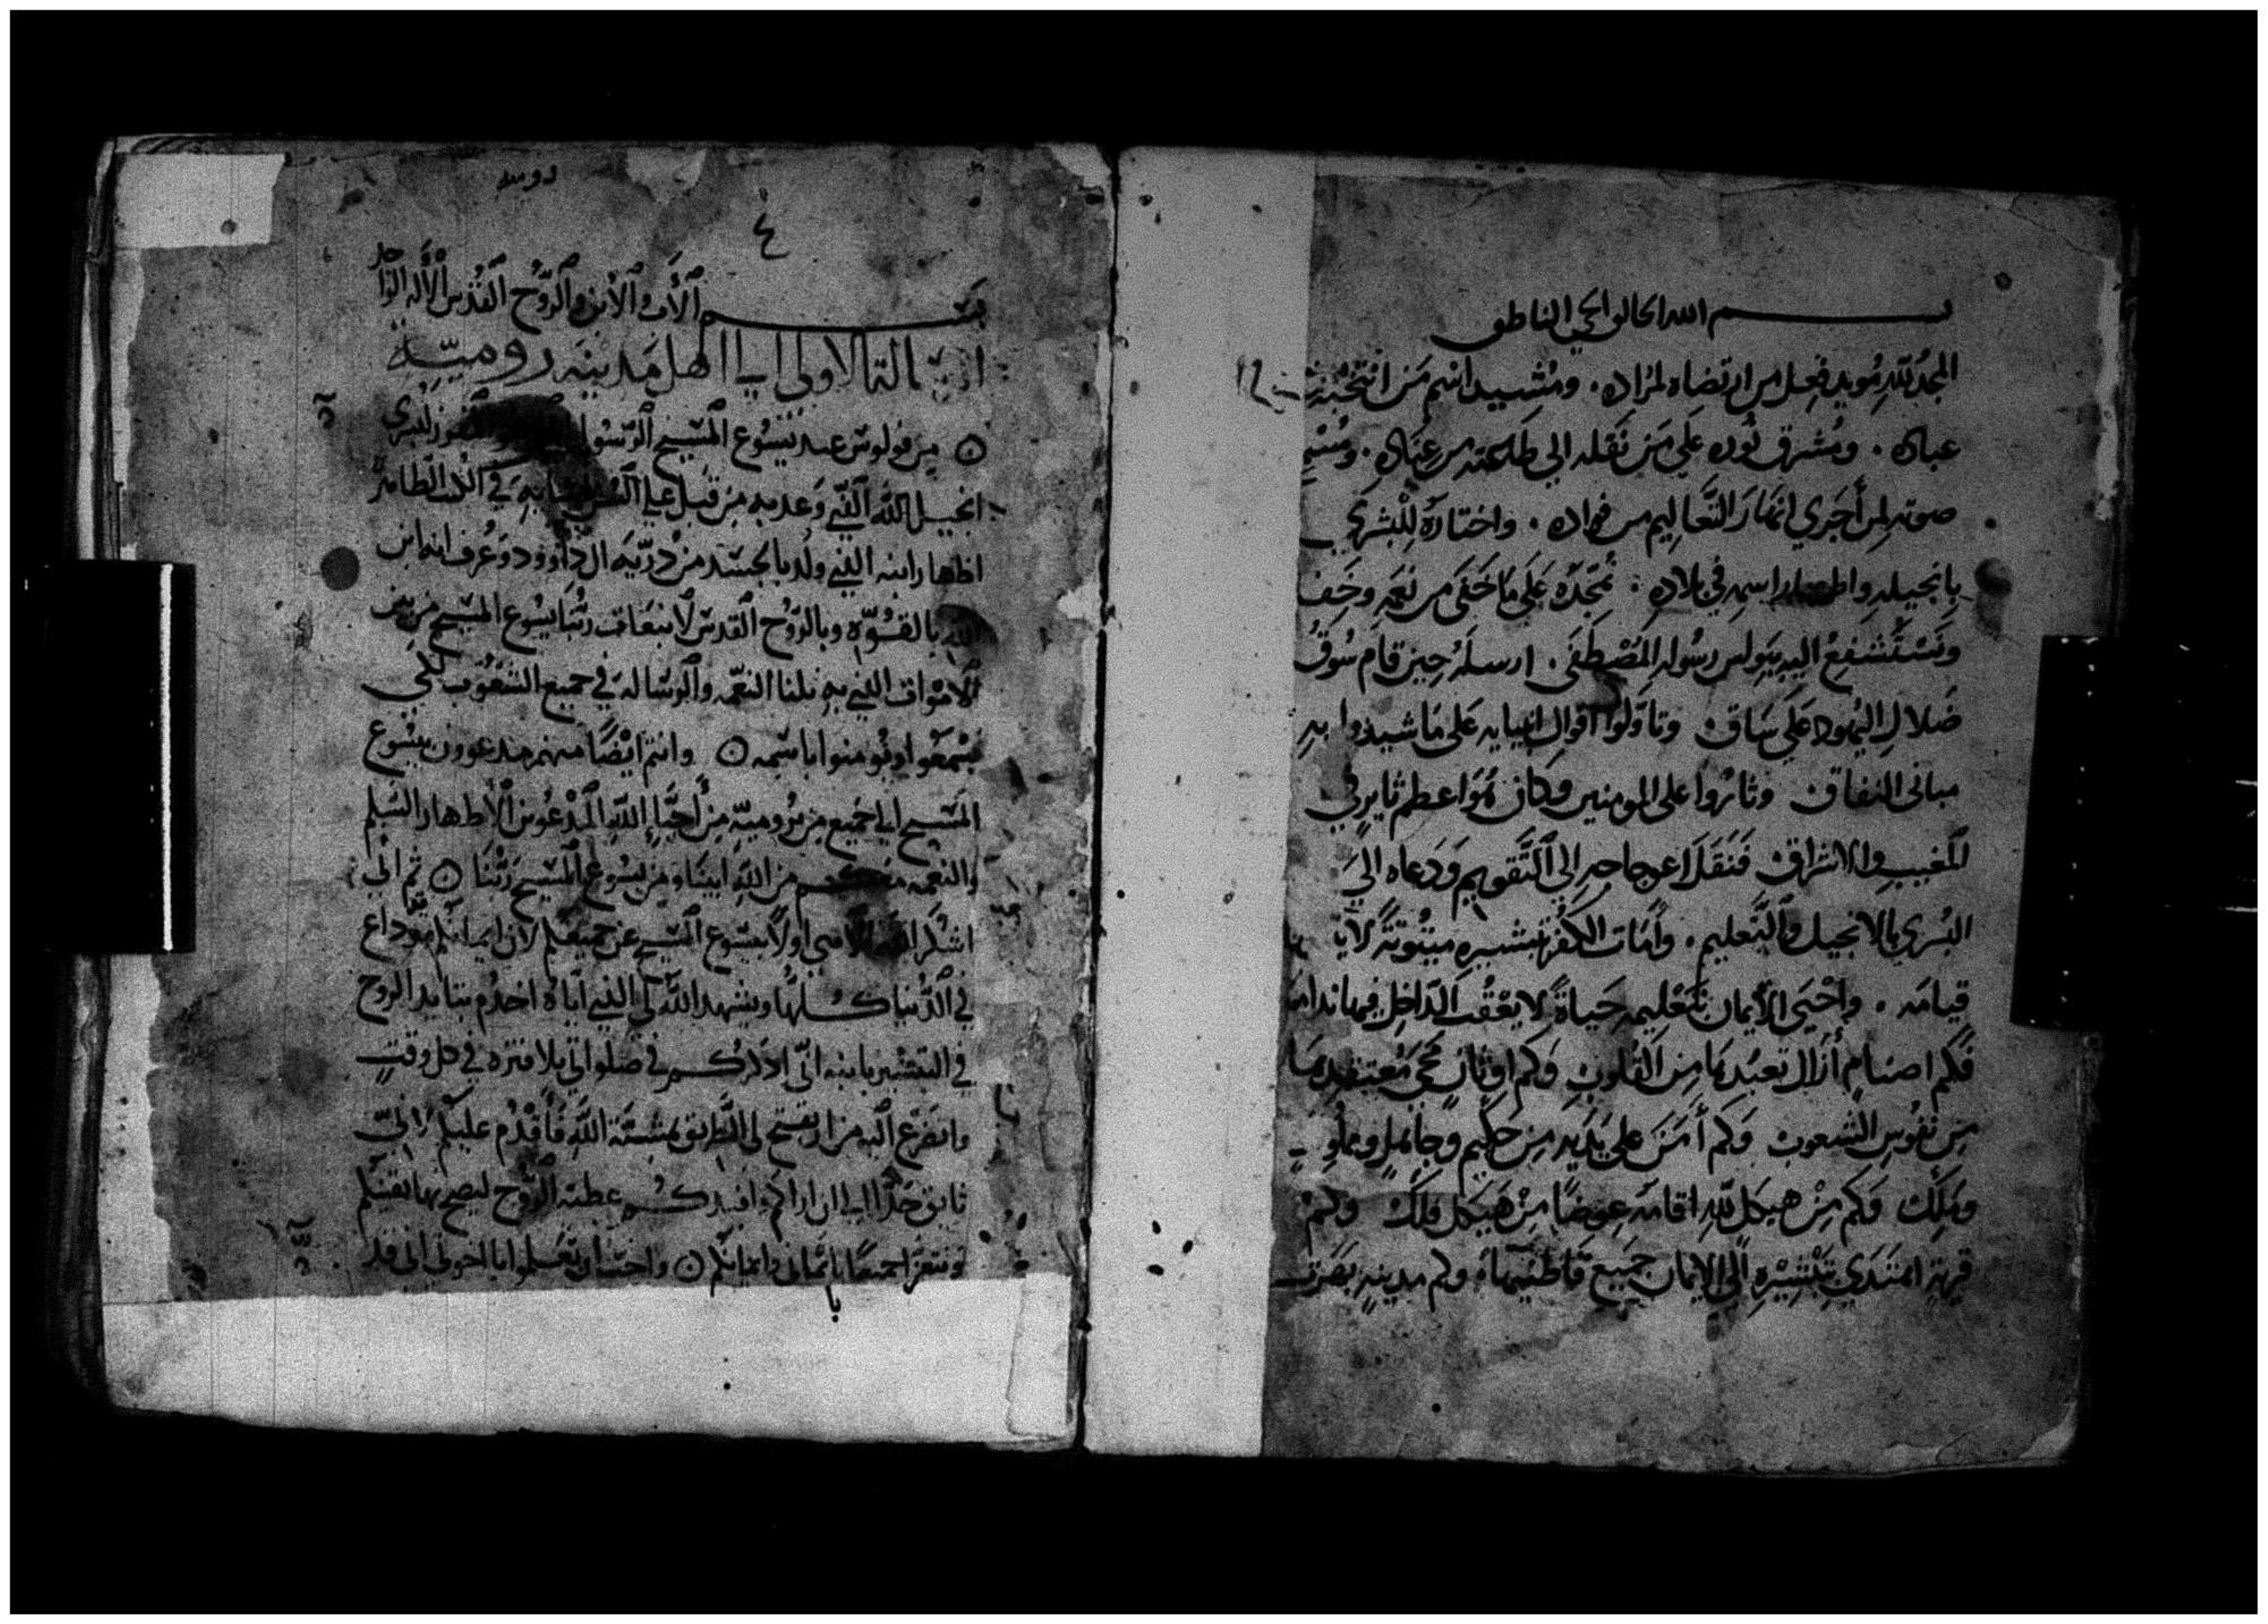 بسم الله الخالق الحي الناطق
المجد لله مويد فعل من ارتضاه لمراده . ومشيد اسم من انتخبه من
عباده . ومشرق نوره علي من نقله الي طاعته من عناده .
صوته لمن أجري انهار التعاليم من فواده . واختاره للبشري
بانجيله واظهار اسمه في بلاده : نمجده علي ما خفي من نعمه
ونستشفع اليه ببولس رسوله المصطفي . ارسله حين قام سوق
ضلال اليهود علي ساق وتاولوا اقوال انبيايه علي ما شيدوا به
مباني النفاق وثاروا علي المومنين وكان هو اعظم ثاير في
المغيب والاشراق فنقله اعوجاجه الي التقويم ودعاه الي
البشري بالانجيل والتعليم . وأمات الكفر بتبشيره ميتوتة لا
قيامه . واحيي الأيمان بتعليمه حياة لا يعقب الداخل فيها ندامه
فكم اصنام أزال تعبدها من القلوب وكم اوثان محي معتقدها
من نفوس الشعوب وكم أمن علي يديه من حكيم وجاهل ومملوك
وملك وكم من هيكل لله اقامه عوضا من هيكل فلك وكم
قرية اهتدي بتبشيره الي الايمان جميع قاطنيها . وكم مدينة
رومية
٤
بسم الأب والابن والروح القدس الأله الواحد
الرسالة الاولي الي اهل مدينه روميه
من فولوس عبد يسوع المسيح الرسول المفروز لبشري
انجيل الله الذي وعد به من قبل علي السن انبيايه في الكتب الطاهرة
اظهار ابنه الذي ولد بالجسد من ذرية ال داوود وعرف انه ابن
الله بالقوة وبالروح القدس لانبعاث ربنا يسوع المسيح من بين
الاموات الذي به نلنا النعمه والرسالة في جميع الشعوب لكي
يسمعوا ويومنوا باسمه وانتم ايضا منهم مدعوون بيسوع
المسيح الي جميع من برومية من أحبا الله المدعوين الأطهار السلم
والنعمه معكم من الله ابينا ومن يسوع المسيح ربنا ثم اني
اشكر الاهي أولا بيسوع المسيح عن جميعكم لان ايمانكم قد ذاع
في الدنيا كلها ويشهد الله لي الذي اياه اخدم بتاييد الروح
في التبشير بابنه اني اذكركم في صلواتي بلا فتره في كل وقت
واتضرع اليه من ان يفتح لي الطريق بمشية الله فأقدم عليكم لاني
تايق جدا الي ان اراكم وافيدكم عطية الروح ليصح بها يقينكم
ونتعزا جميعا بايماني وايمانكم واحب ان تعلموا يا اخوتي اني قد